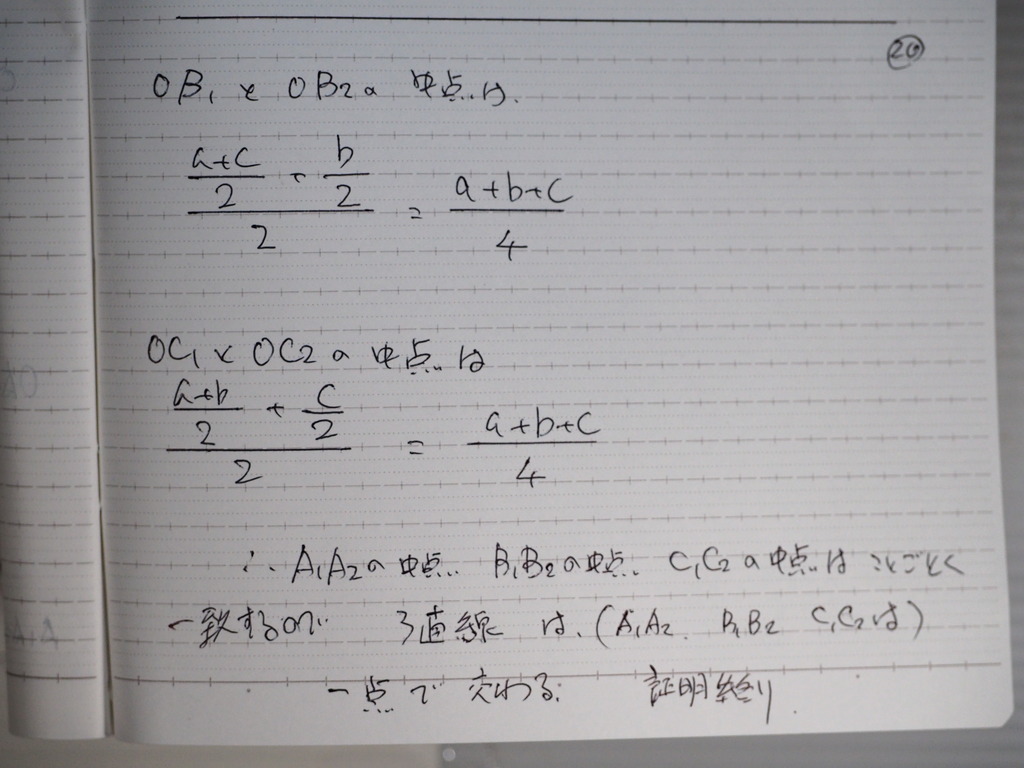 ⑳
OB₁ と OB₂の 中点は.
((a+c)/2 + b/2)/2 = (a+b+c)/4
OC₁ と OC₂の 中点は
((a+b)/2 + c/2)/2 = (a+b+c)/4
∴ A₁A₂の中点. B₁B₂の中点. C₁C₂の中点は ことごとく
一致するので 3直線 は、(A₁A₂. B₁B₂ C₁C₂は)
一点で 交わる. 証明終り.